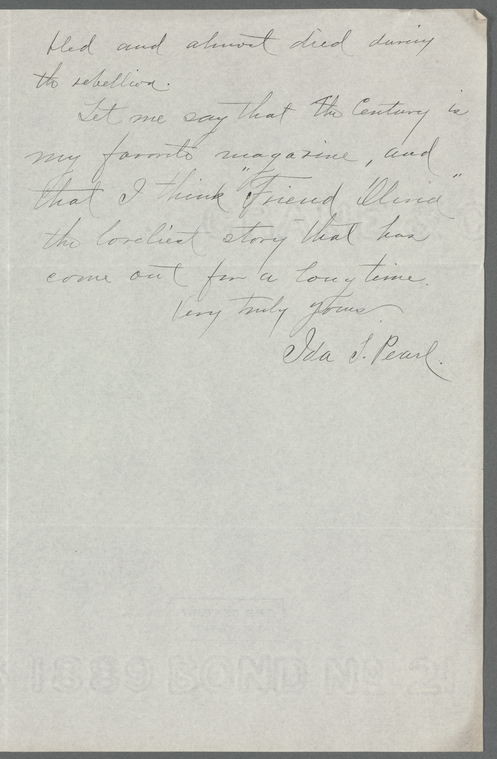 bled and almost died during
the rebellion.
Let me say that The Century is
my favorite magazine, and
that I think "Friend Olivia"
the loveliest story that has
come out for a long time.
Very truly yours
Ida S. Pearl.
1889 BOND No 21